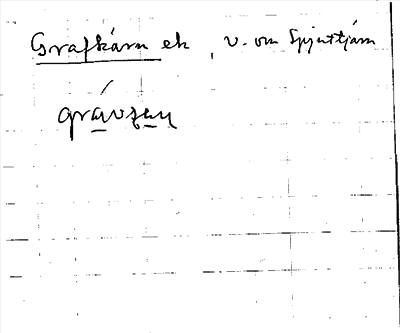 Grafkärn ek , v. om Spjuttjärn
gravʒaɳ